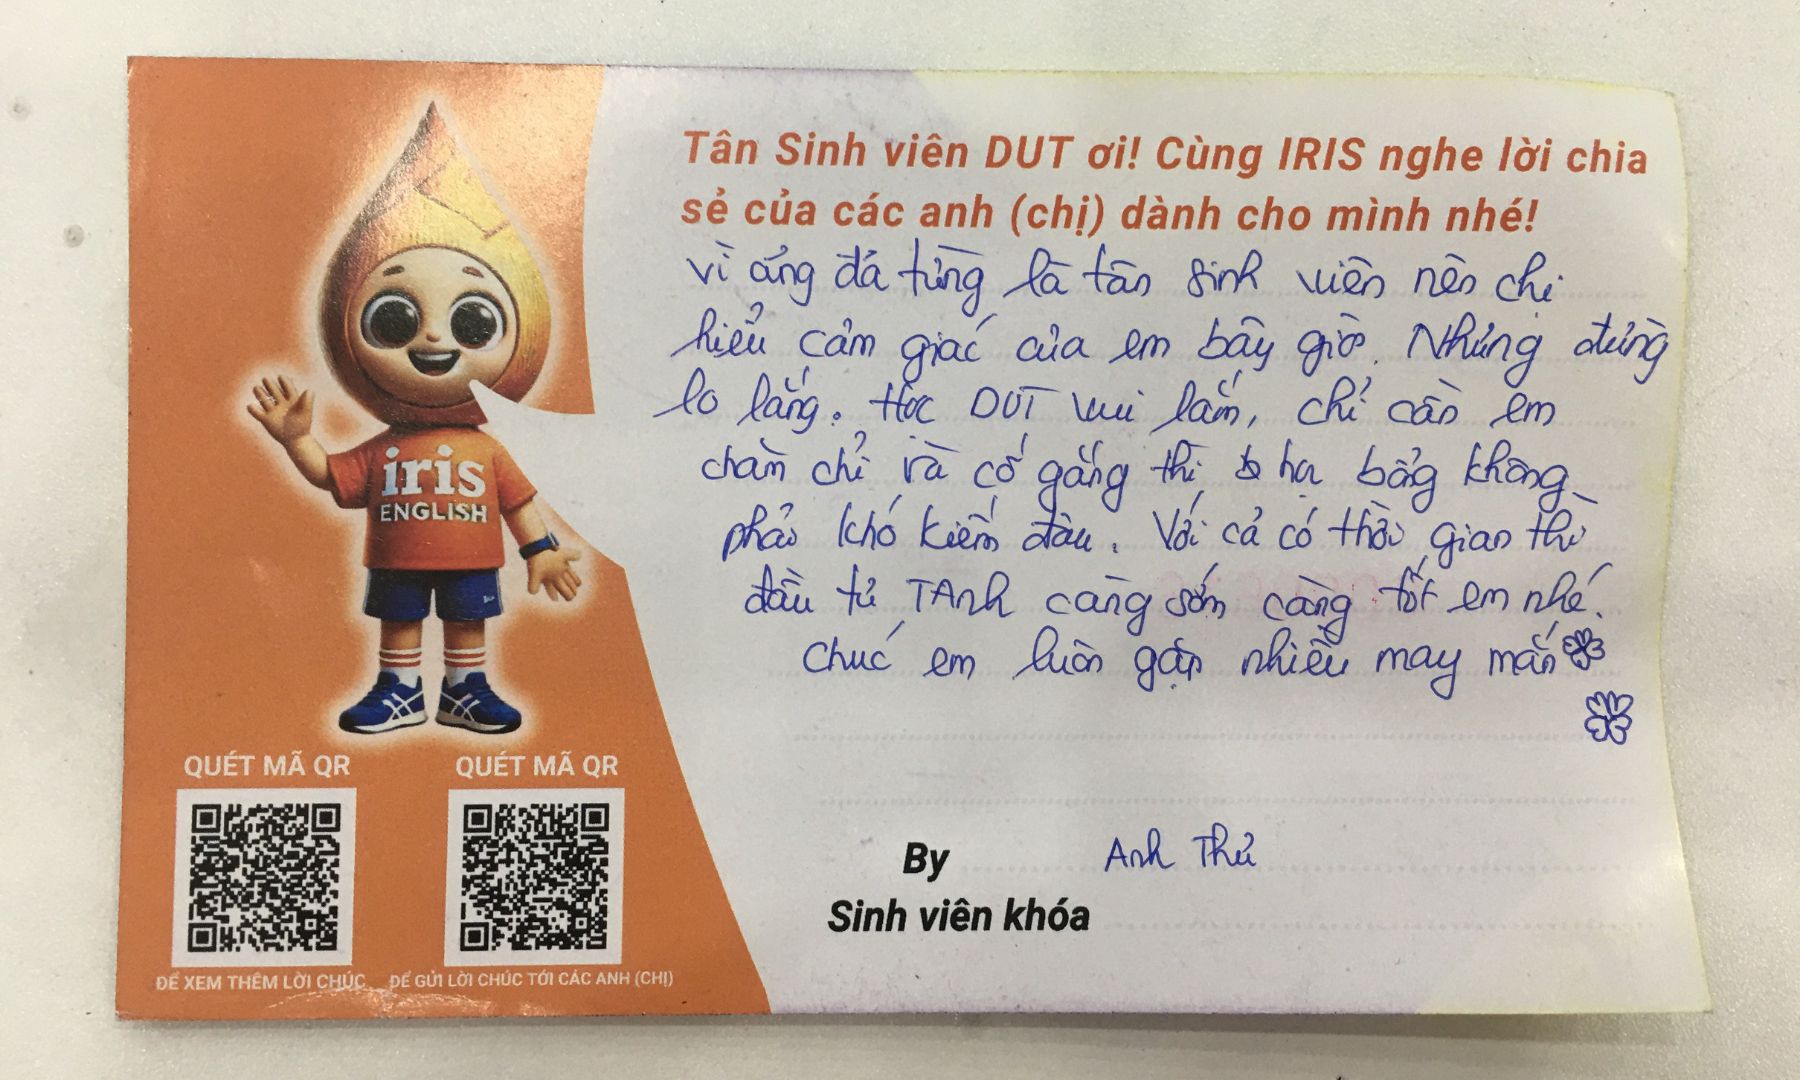 Tân Sinh viên DUT ơi! Cùng IRIS nghe lời chia
sẻ của các anh (chị) dành cho mình nhé!
Vì cũng đã từng là tân sinh viên nên chị
hiểu cảm giác của em bây giờ. Nhưng đừng
lo lắng. Học DUT vui lắm, chỉ cần em
chăm chỉ và cố gắng thì học bổng không
phải khó kiếm đâu. Với cả có thời gian thì
đầu tư TAnh càng sớm càng tốt em nhé.
Chúc em luôn gặp nhiều may mắn
iris
ENGLISH
QUÉT MÃ QR
QUÉT MÃ QR
ĐỂ XEM THÊM LỜI CHÚC
ĐỂ GỬI LỜI CHÚC TỚI CÁC ANH (CHỊ)
By Anh Thư
Sinh viên khóa